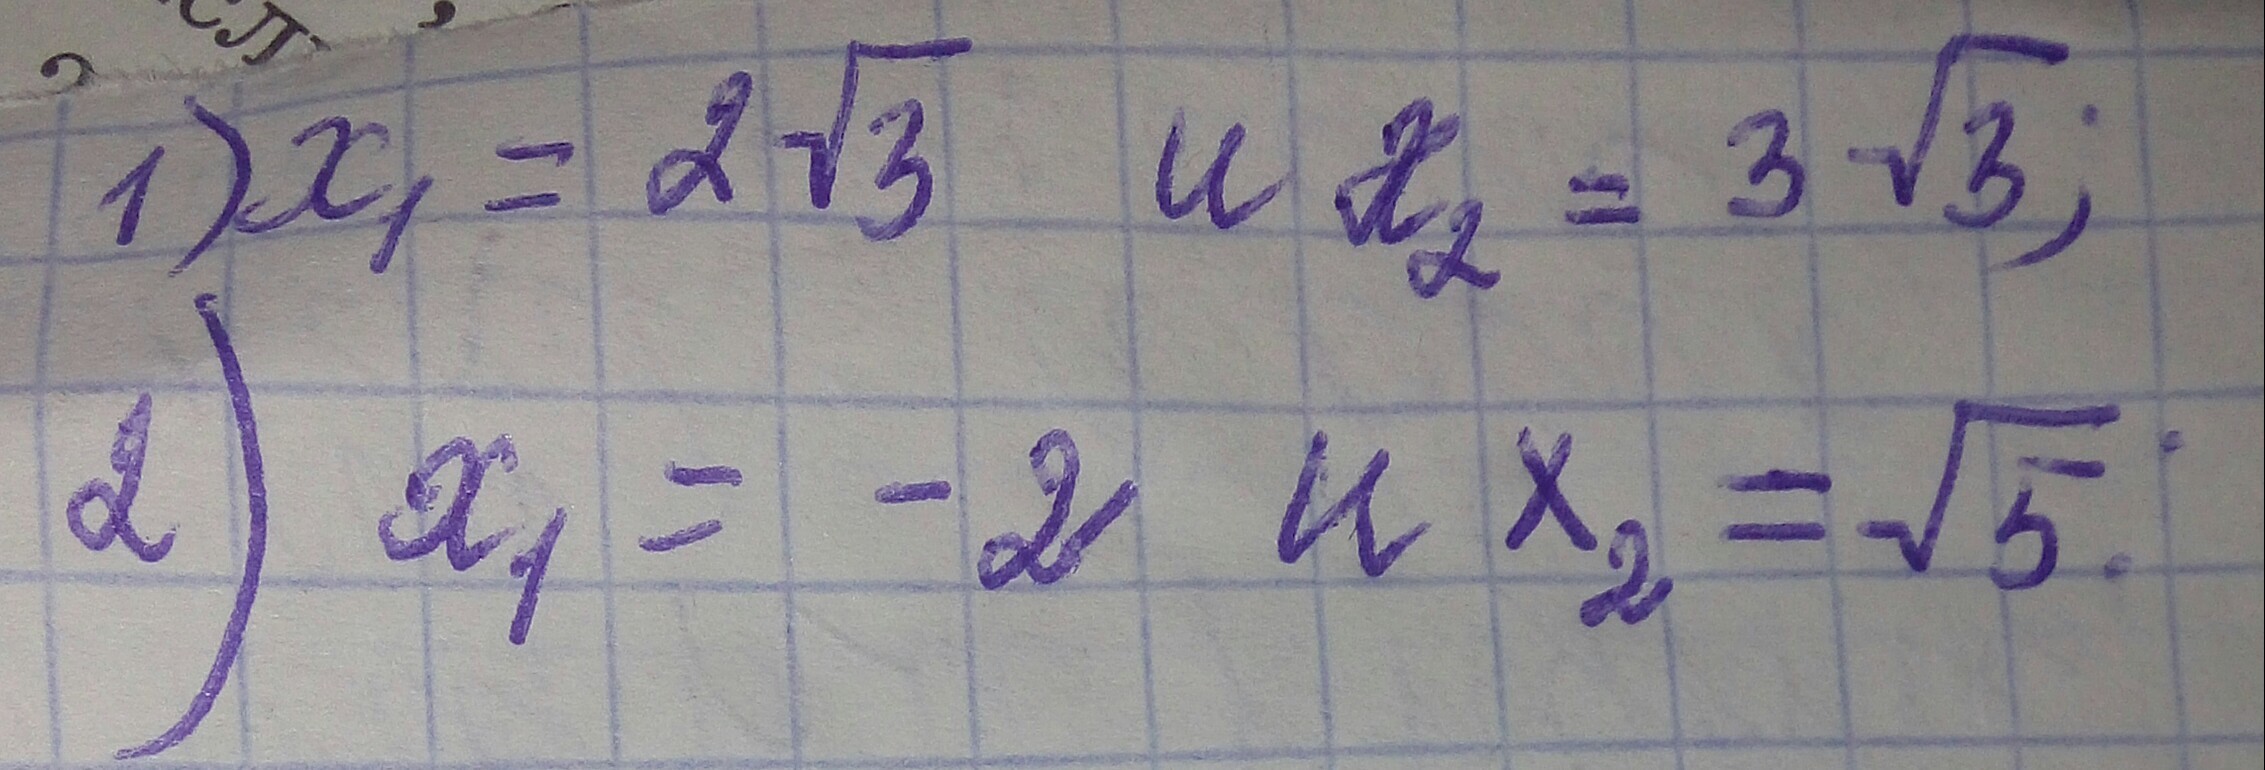 1) x₁ = 2√3 и x₂ = 3√3;
2) x₁ = -2 и x₂ = √5.